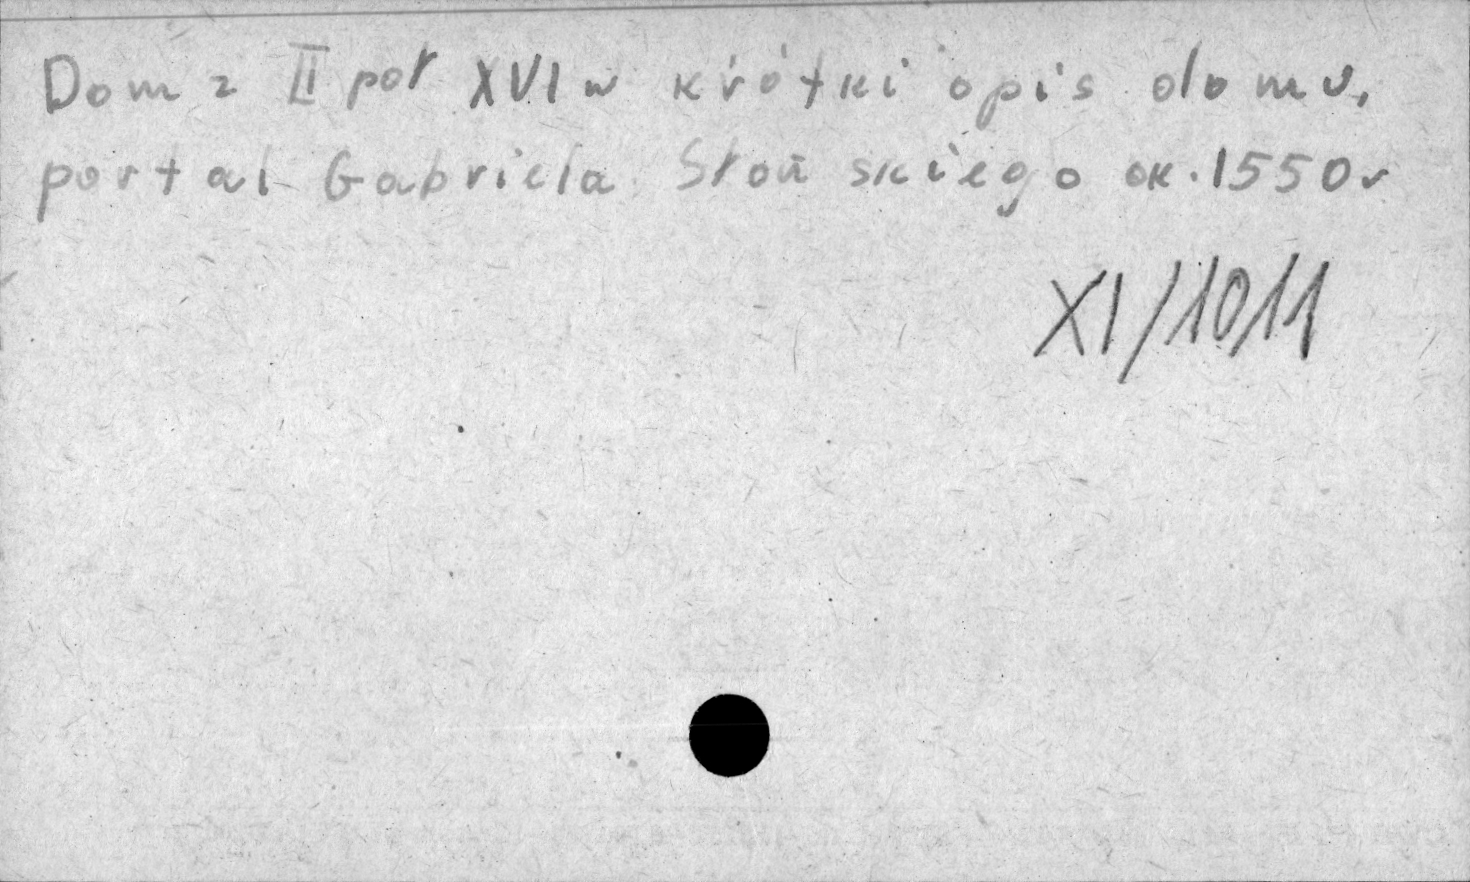 Dom z II poł XVI w krótki opis domu,
portal Gabriela Słońskiego ok. 1550 r
XI/1011